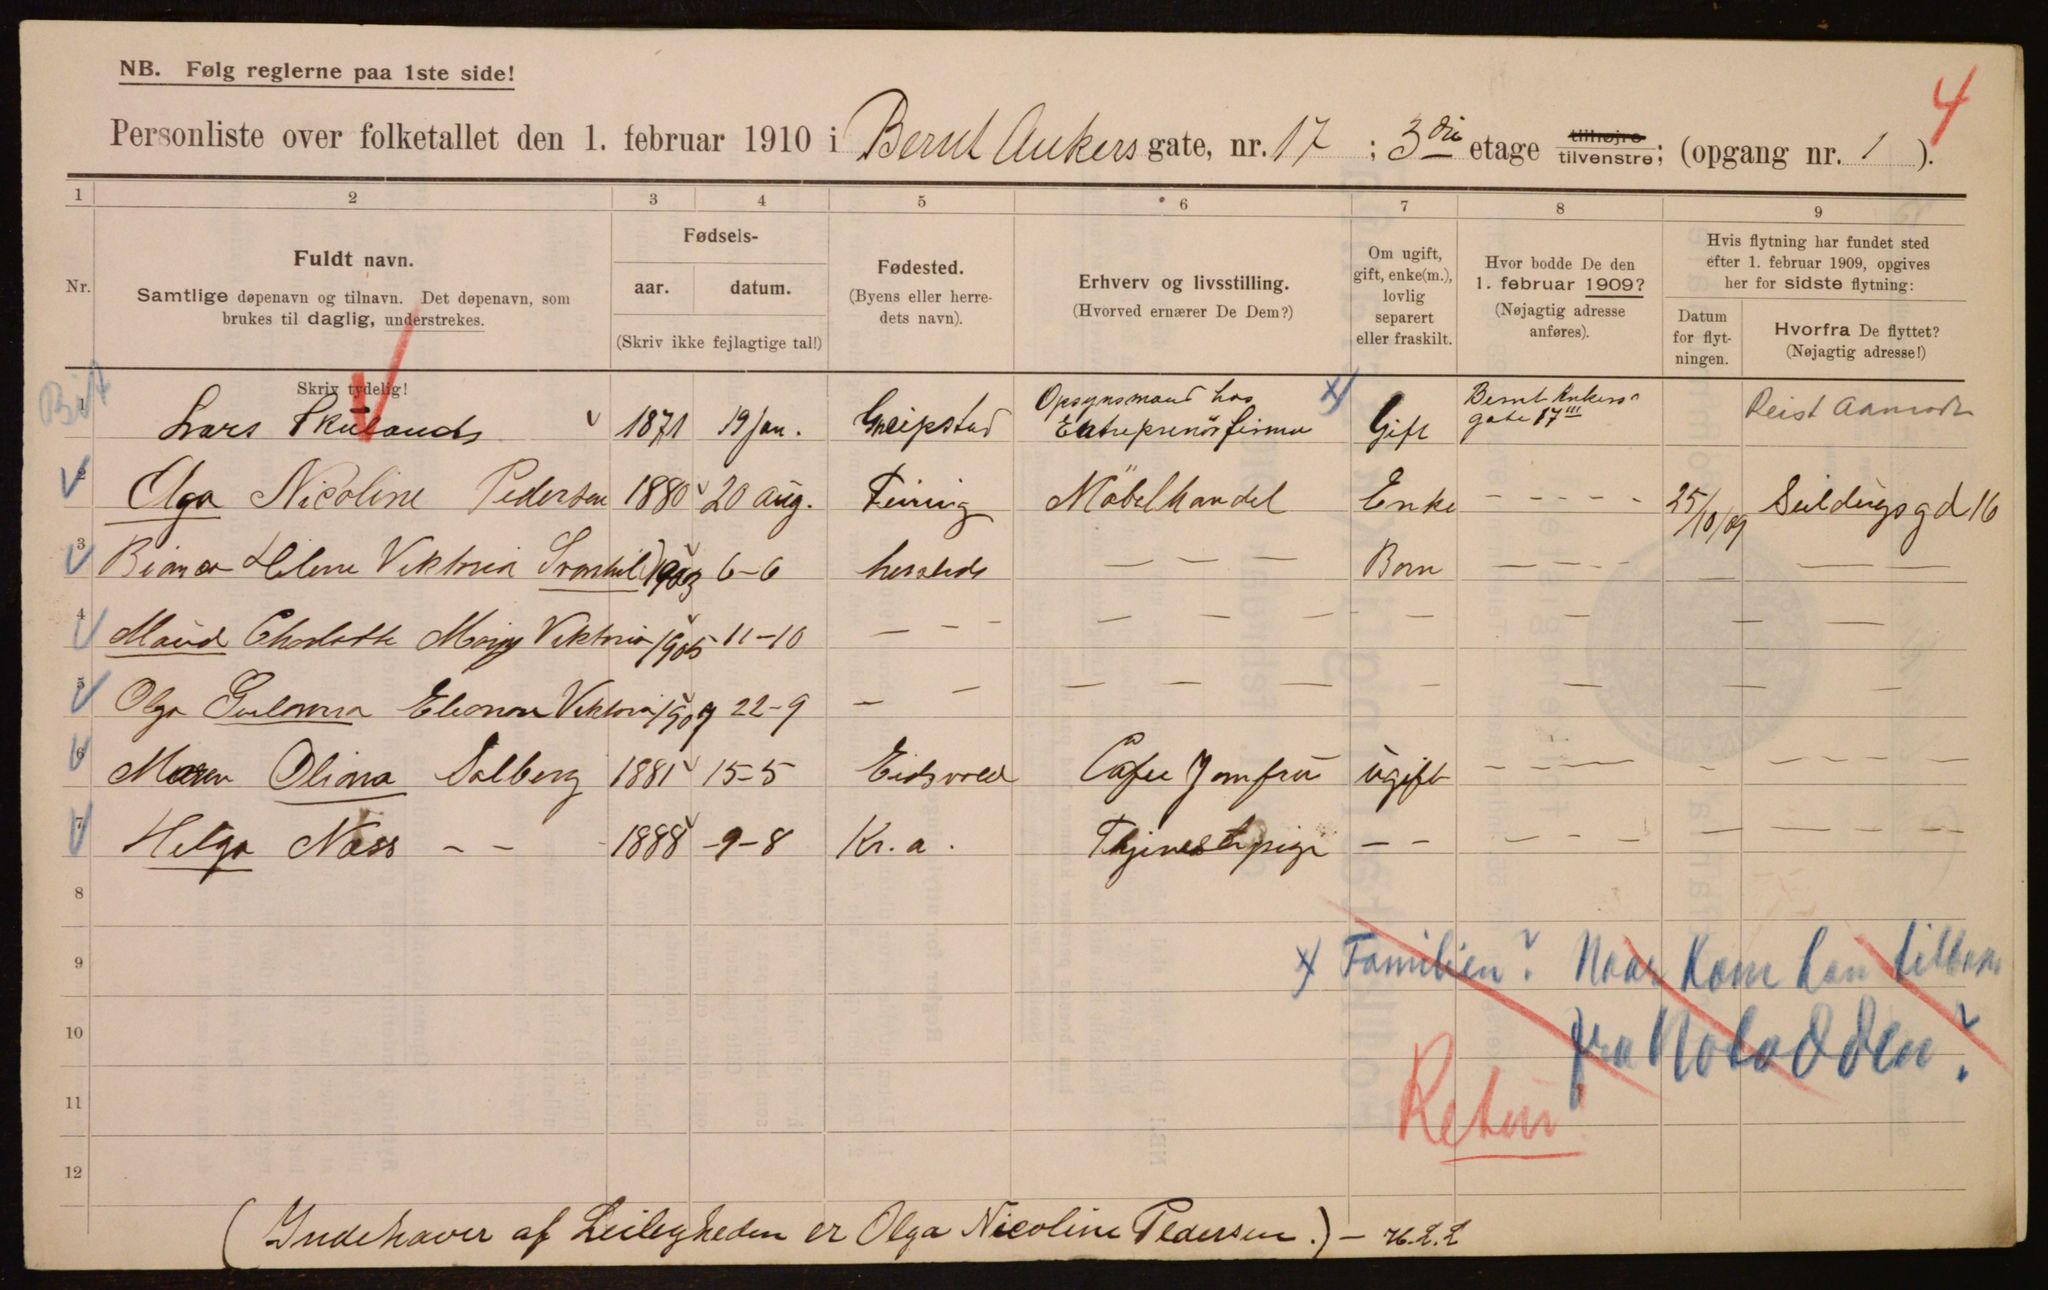 NB. Følg reglerne paa 1ste side!
4
Personliste over folketallet den 1. februar 1910 i Bernt Ankers gate, nr. 17 ; 3die etage tilhøjre tilvenstre; (opgang nr. 1 ).
1 2 3 4 5 6 7 8 9
Nr.
Fuldt navn.
Samtlige døpenavn og tilnavn. Det døpenavn, som
brukes til daglig, understrekes.
Skriv tydelig!
Fødsels-
aar. datum.
(Skriv ikke fejlagtige tal!)
Fødested.
(Byens eller herre-
dets navn).
Erhverv og livsstilling.
(Hvorved ernærer De Dem?)
Om ugift,
gift, enke(m.),
lovlig
separert
eller fraskilt.
Hvor bodde De den
1. februar 1909?
(Nøjagtig adresse
anføres).
Hvis flytning har fundet sted
efter 1. februar 1909, opgives
her for sidste flytning:
Datum
for flyt-
ningen.
Hvorfra De flyttet?
(Nøjagtig adresse!)
1 Lars 1871 19 jan. Opsynsmand hos Entreprenörfirma x) Gift Bernt Ankers gate 17 III Reist
2 Olga Nicoline Pedersen 1880 20 aug. Feiring Möbelhandel Enke - - - - - 25/10/09 16
3 Helene Viktoria 1903 6-6 — — — Barn — — — — — — —
4 Maud Charlotte Viktoria 1905 11-10 — - - — — — — - — — —
5 Olga Eleonora Viktoria 1909 22-9 — — — — — — — — — —
6 Maren Olina Solberg 1881 15-5 Eidsvold Cafee Jomfru ugift - - — — - — — —
7 Helga Næss - - 1888 9-8 Kr.a. Tjenestepige — - — — — — — — —
8
9
10
11
12
x) Familien? Naar kom han tilbake
fra Notodden?
Retur!
(Indehaver af Leiligheden er Olga Nicoline Pedersen.) —